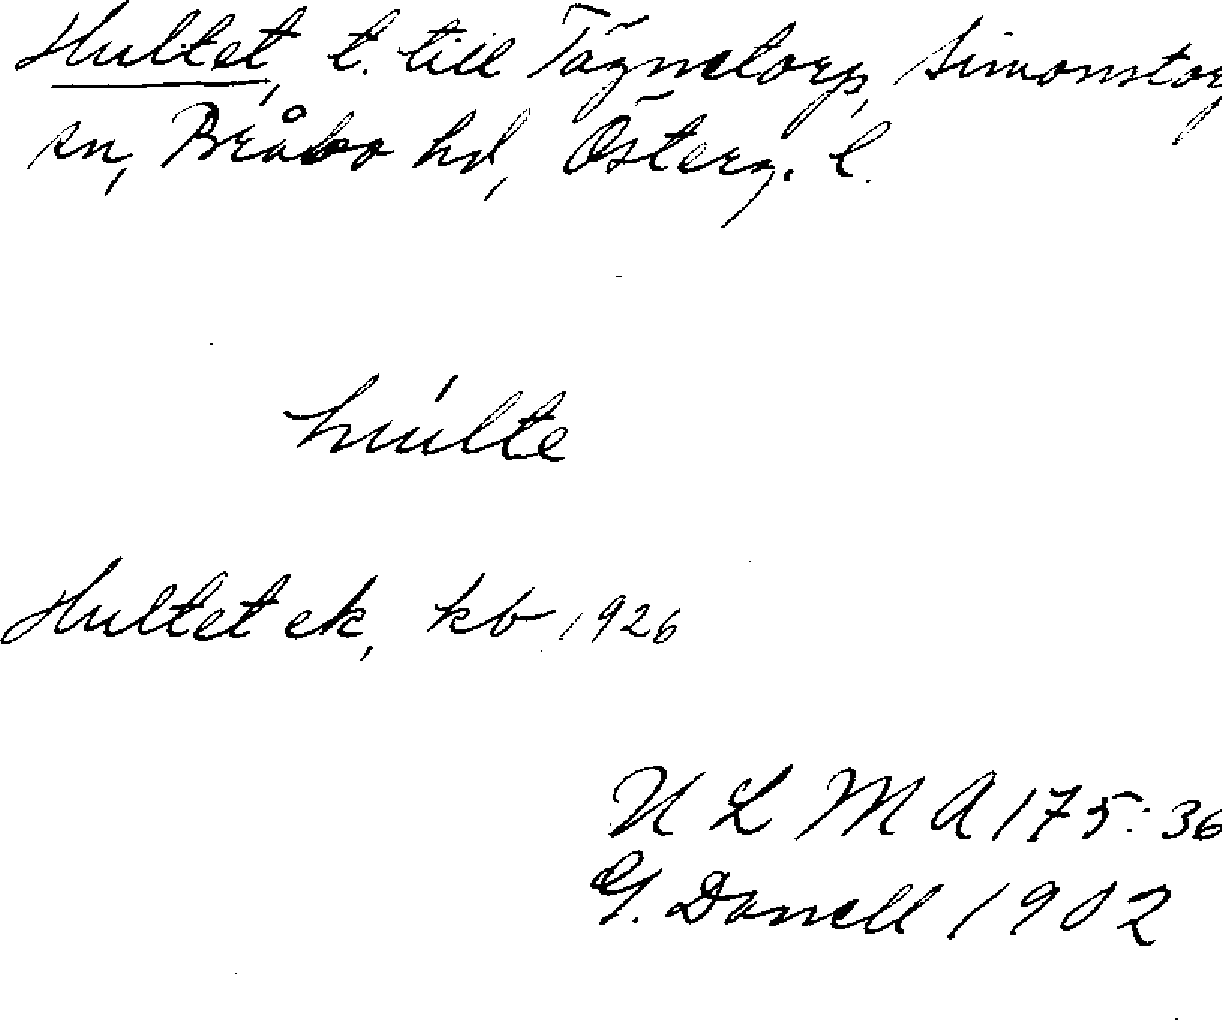 Hultet, t. till Tägnetorp, Simonstorp
sn, Bråbo hd, Österg. l.
húlte
Hultet ek, kb 1926
U L M A 175:36
G. Danell 1902